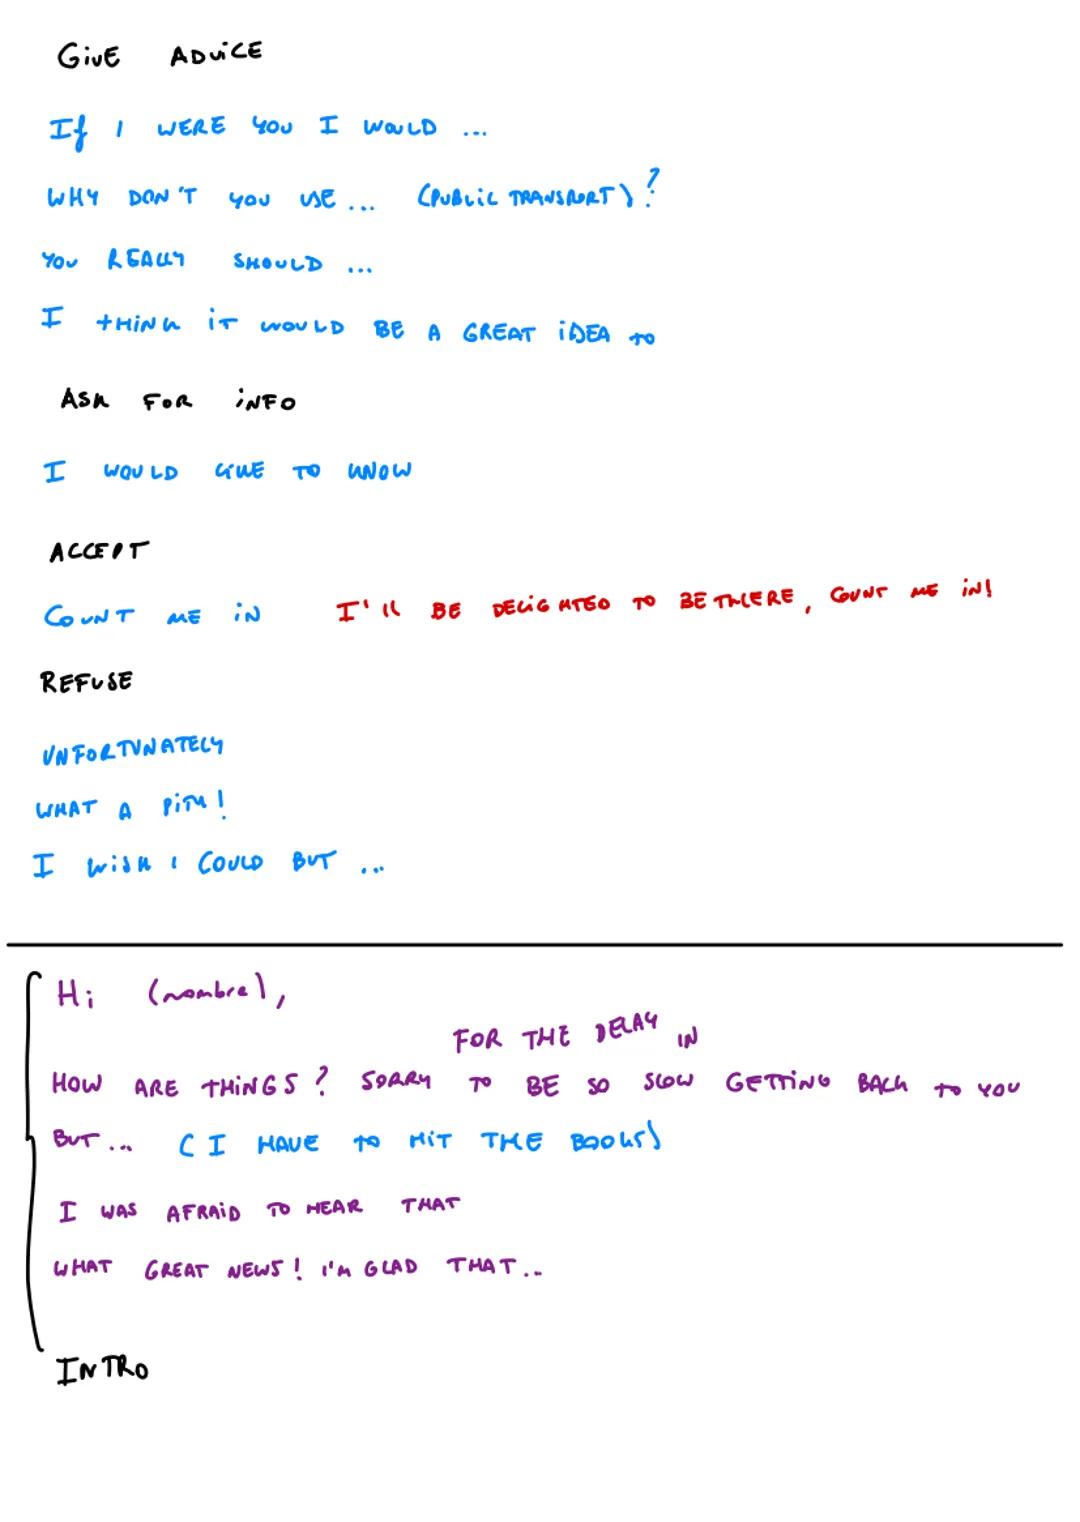 GIVE ADVICE
If I WERE YOU I WOULD ...
WHY DON'T YOU USE ... (PUBLIC TRANSPORT)?
YOU REALLY SHOULD ...
I THINK IT WOULD BE A GREAT IDEA TO
ASK FOR INFO
I WOULD LIKE TO KNOW
ACCEPT
COUNT ME IN I'll BE DELIGHTED TO BE THERE, COUNT ME IN!
REFUSE
UNFORTUNATELY
WHAT A PITY!
I WISH I COULD BUT ...
Hi (nombre),
FOR THE DELAY IN
HOW ARE THINGS? SORRY TO BE SO SLOW GETTING BACK TO YOU
BUT... (I HAVE TO HIT THE BOOKS)
I WAS AFRAID TO HEAR THAT
WHAT GREAT NEWS! I'M GLAD THAT...
INTRO